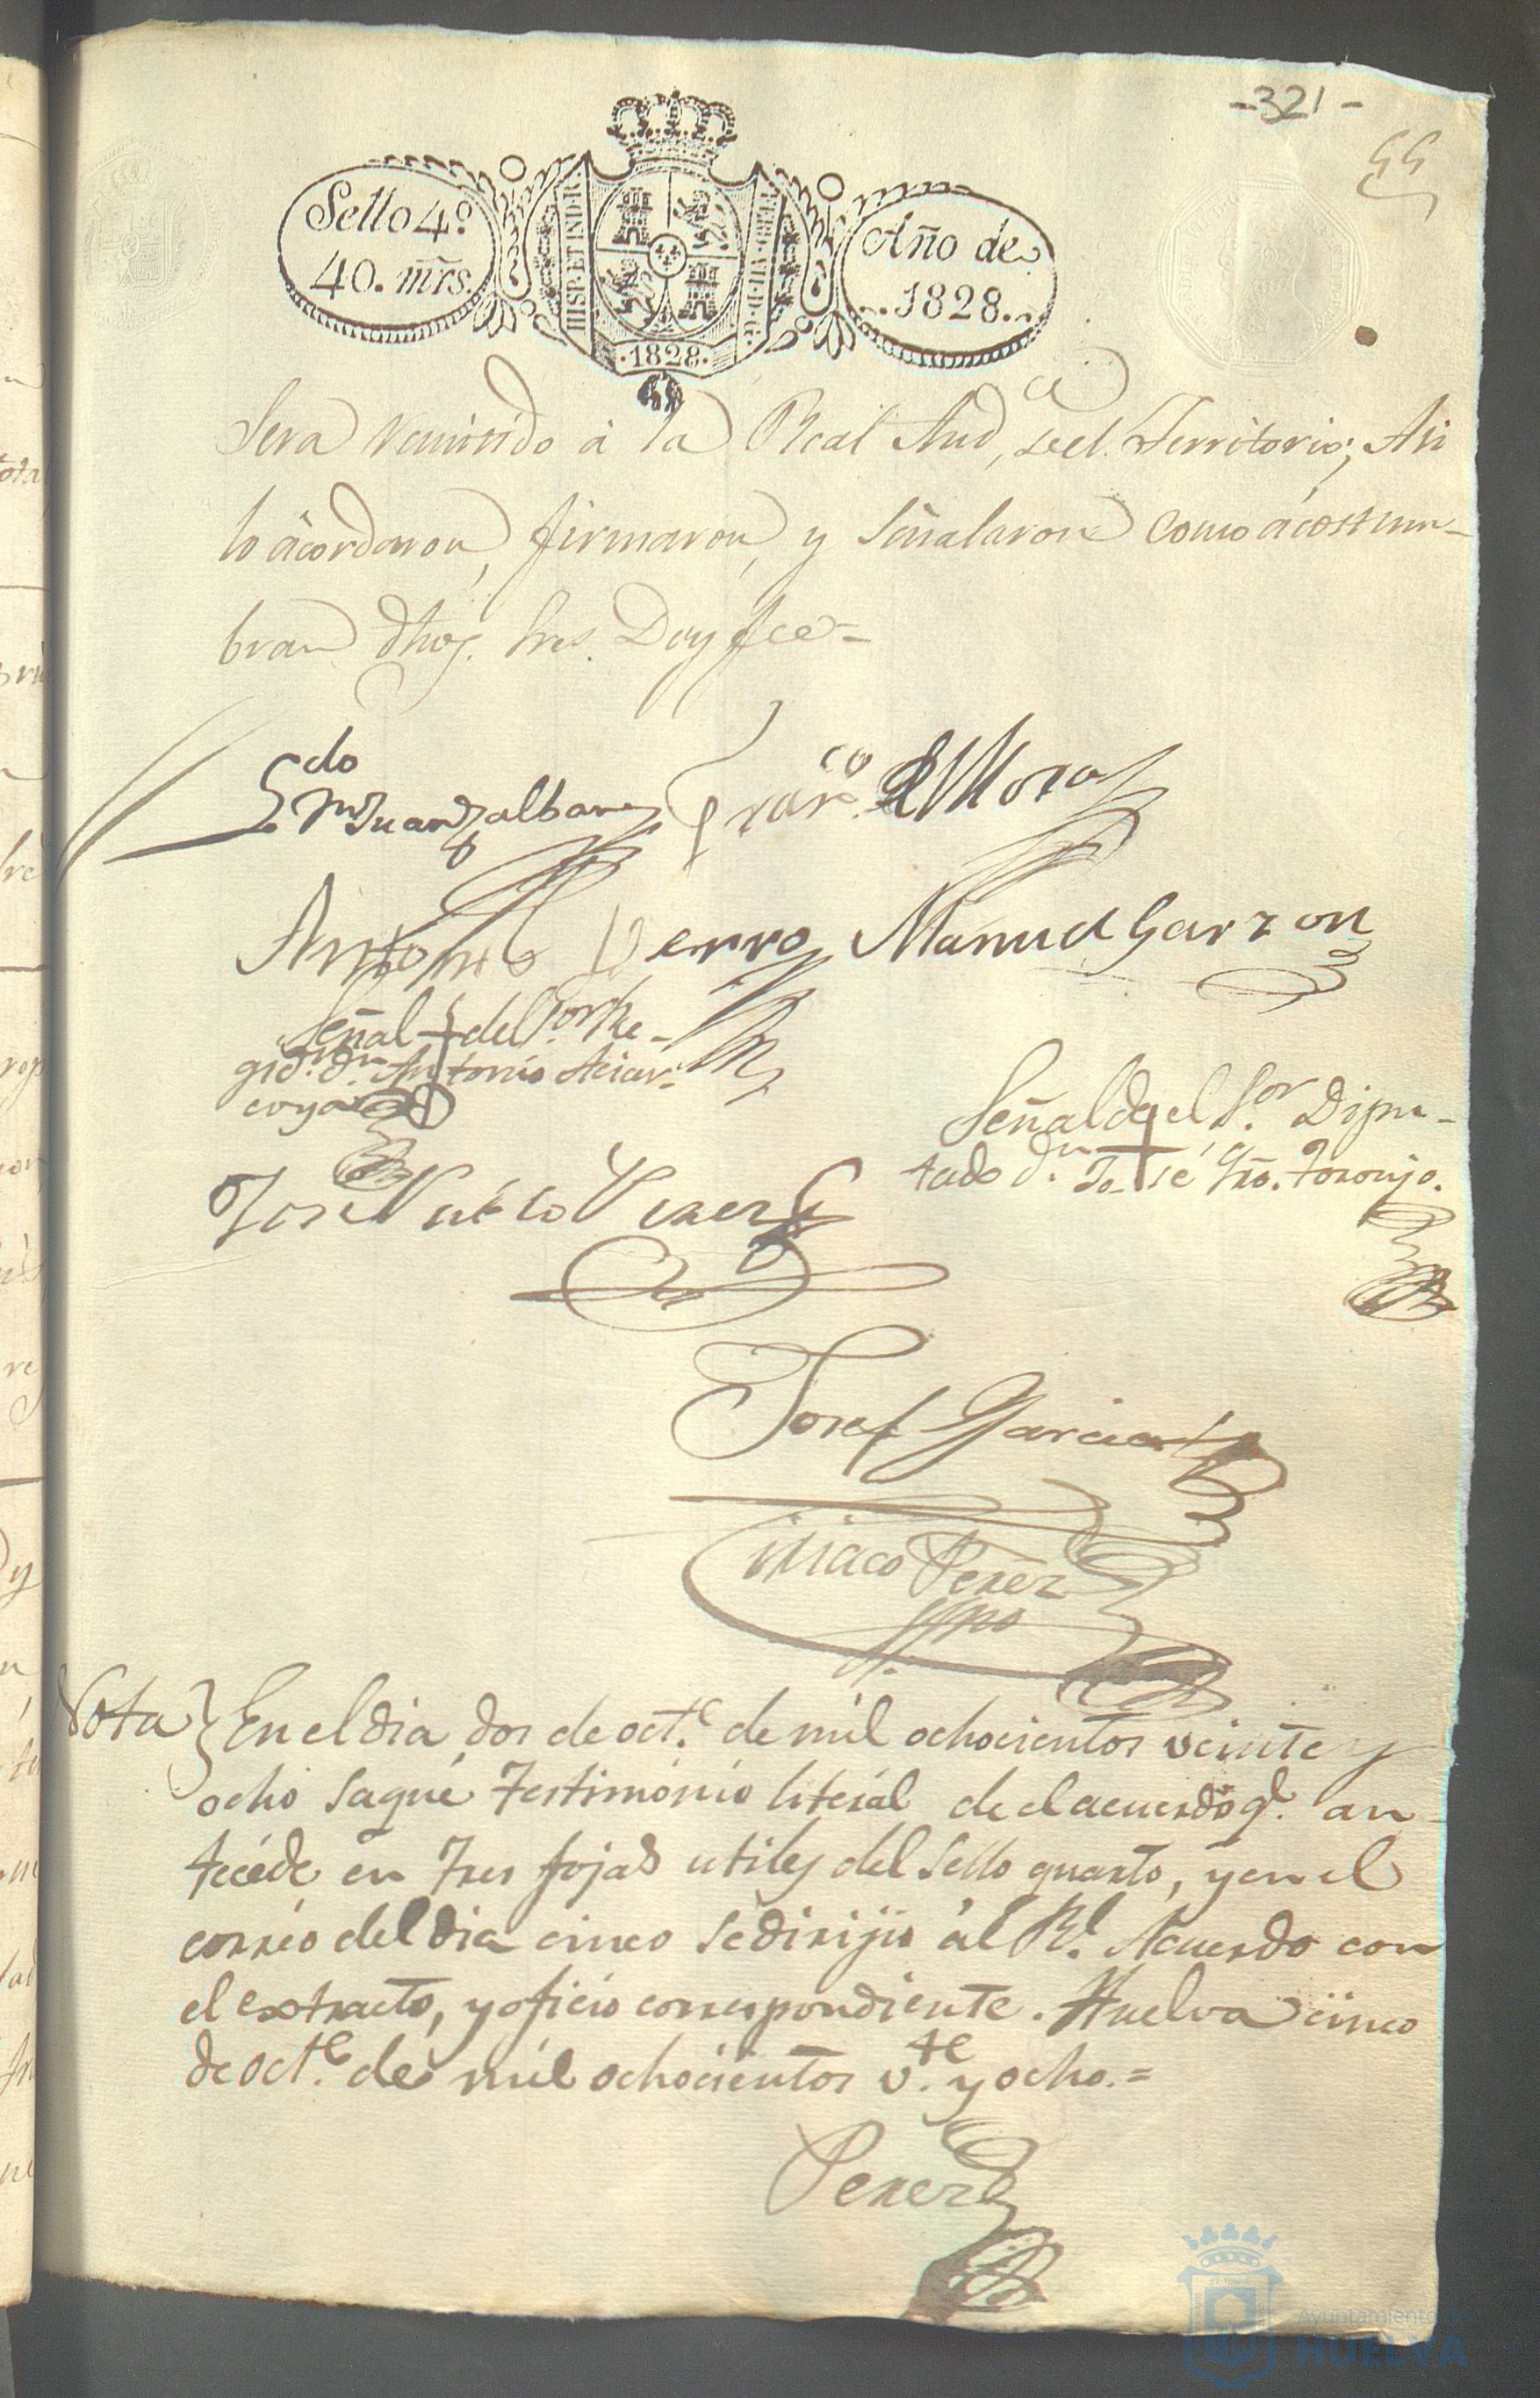 -321-
55
Sello 4º
40. mrs.
HISP. ET IND. R.
1828
Año de
1828
Sera remitido à la Real Auda, del Territorio; Asi
lo acordaron, firmaron, y señalaron como acostum-
bran dhos. Sres. Doy fee=
Ldo
Juan
Franco Mora
Antonio Verro Manuel Garzon
Señal + del Sor. Re-
gidr. dn. Antonio
Señal de el Sor. Dipu-
tado dn. José Toronjo.
Jose Perez
Josef Garcia
Ciriaco Perez
Nota } En el dia dos de octe. de mil ochocientos veinte y
ocho saqué testimónio literál de el acuerdo q. an-
tecéde en tres fojas utiles del sello quarto, y en el
corréo del dia cinco se dirijió al Rl. Acuerdo con
el extracto, y oficio correspondiente. Huelva cinco
de octe. de mil ochocientos vte. y ocho.=
Perez
Ayuntamiento de
HUELVA